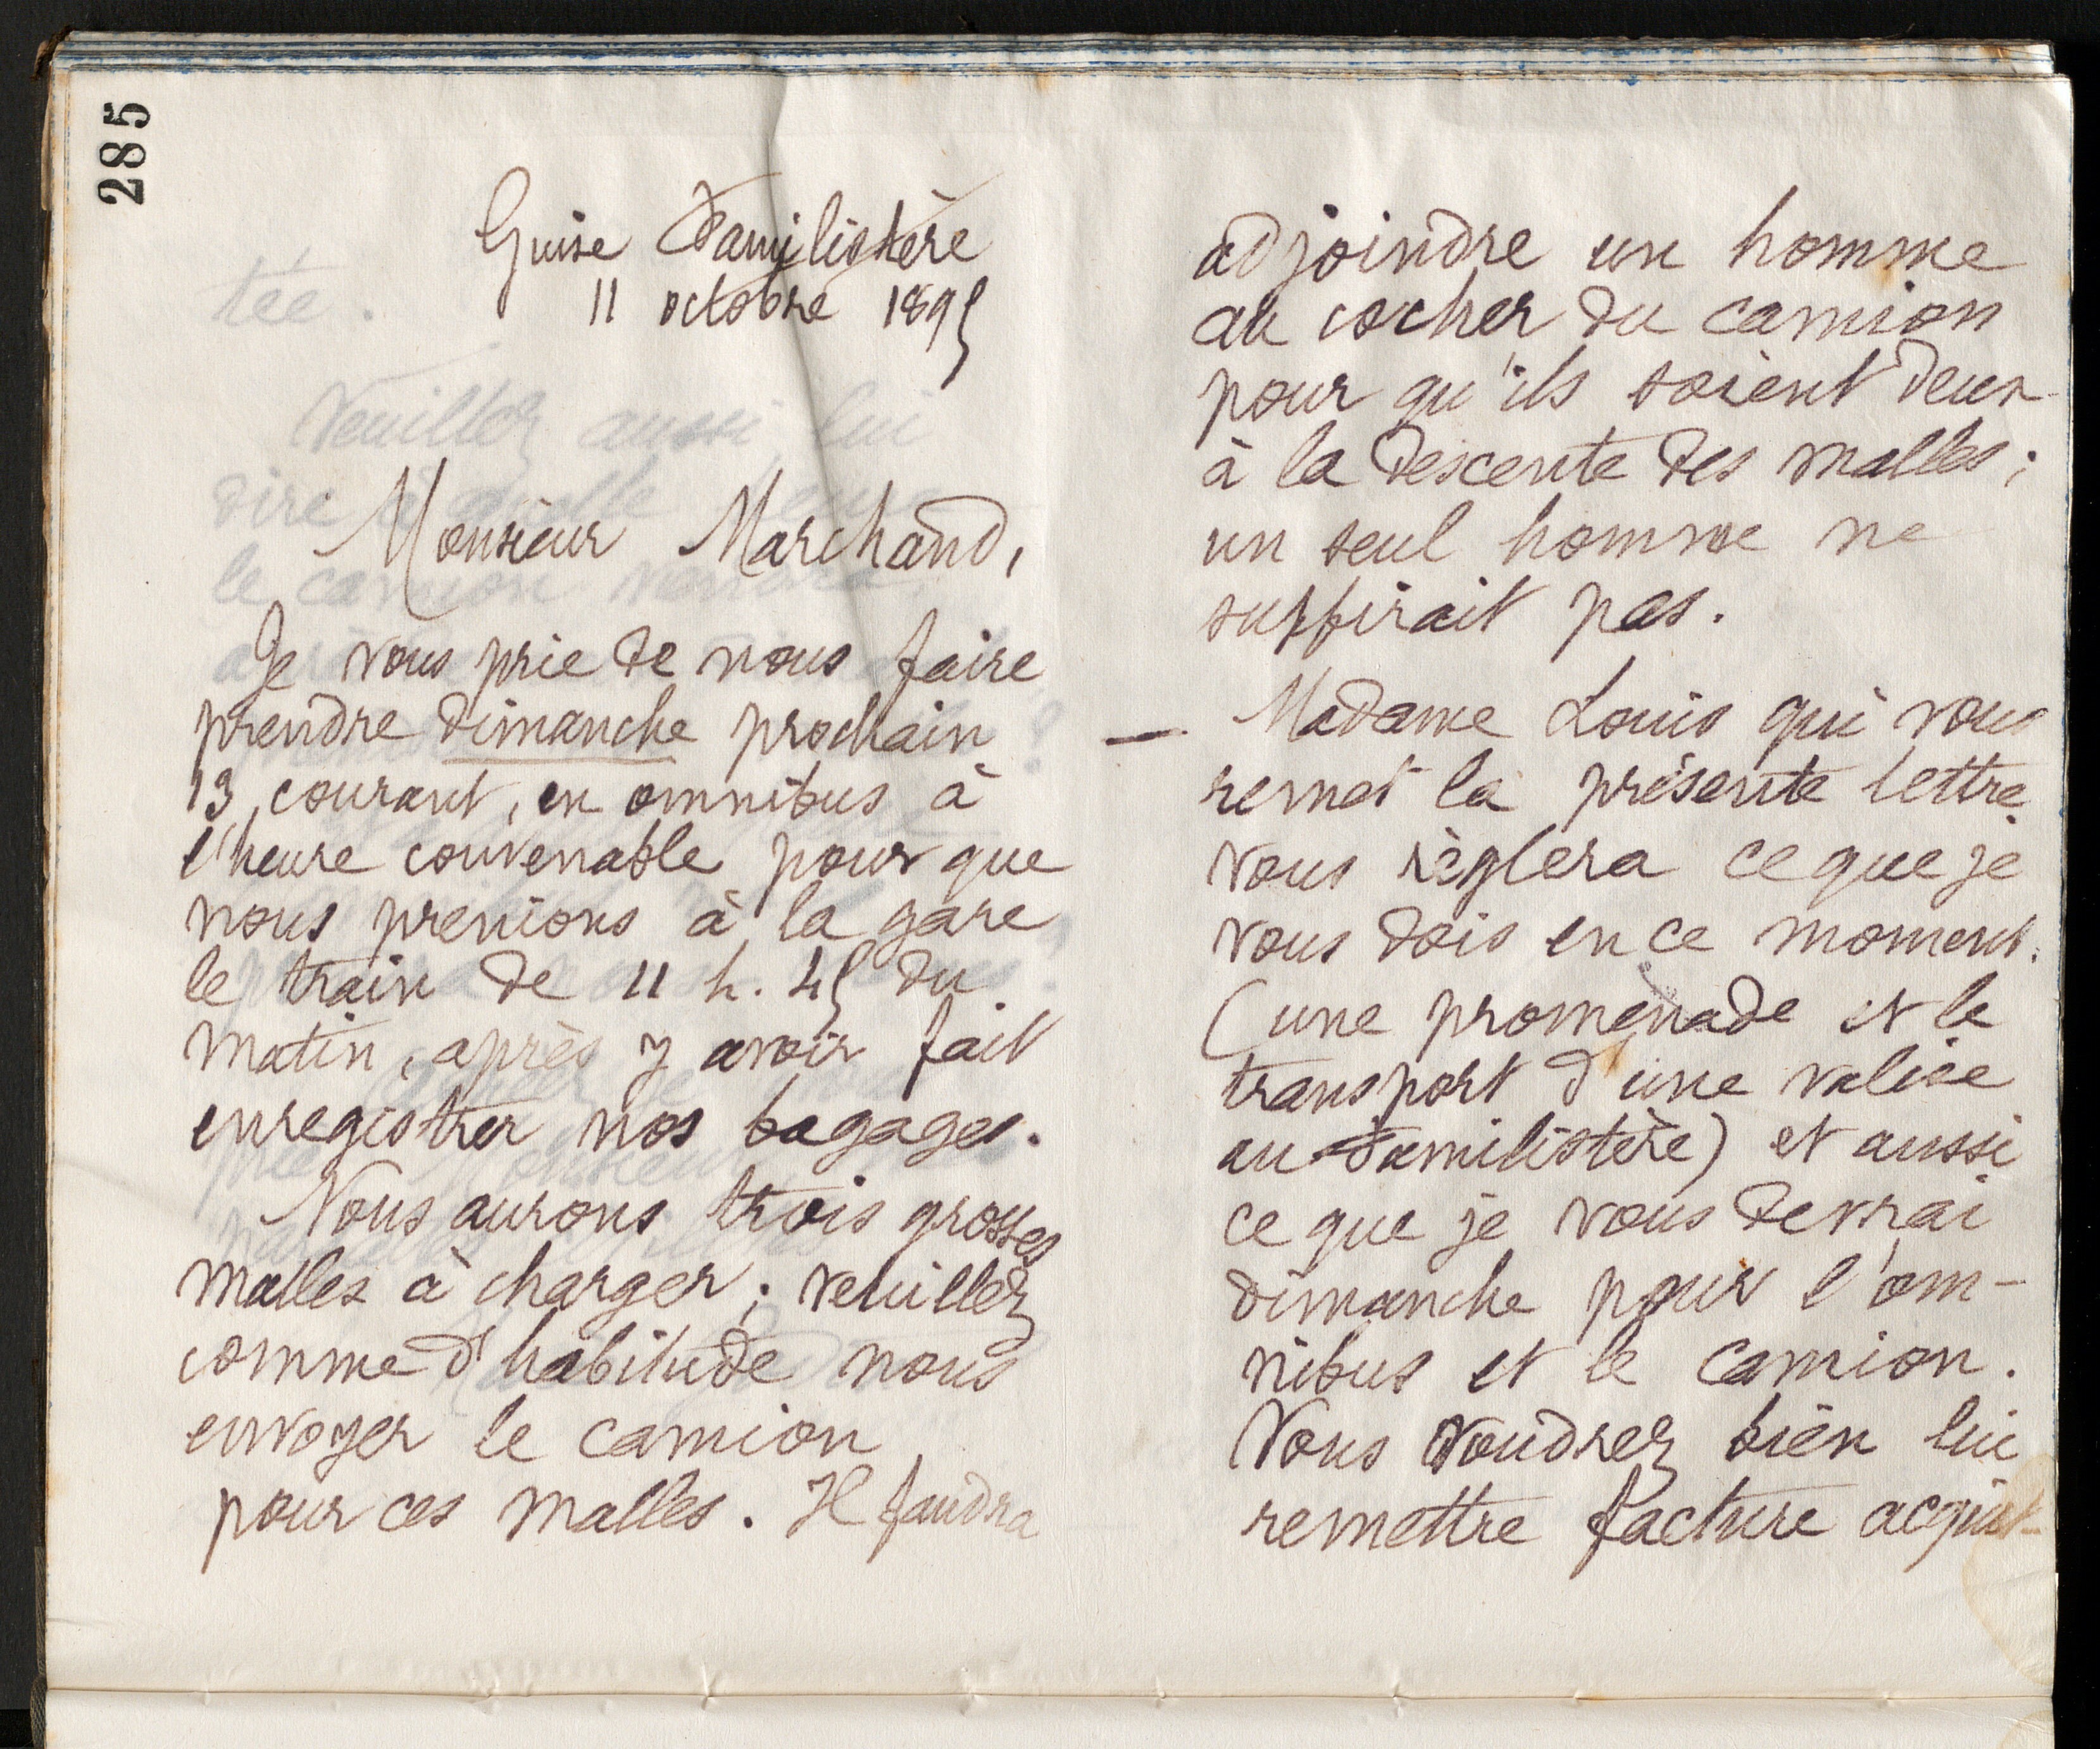 285
Guise Familistère
11 octobre 1895
Monsieur Marchand,
Je vous prie de nous faire
prendre dimanche prochain
13 courant, en omnibus à
l'heure convenable pour que
nous prenions à la gare
le train de 11 h. 45 du
matin, après y avoir fait
enregistrer nos bagages.
Nous aurons trois grosses
malles à charger ; veuillez
comme d'habitude nous
envoyer le camion
pour ces malles. Il faudra
adjoindre un homme
au cocher du camion
pour qu'ils soient deux
à la descente des malles ;
un seul homme ne
suffirait pas.
— Madame Louis qui vous
remet la présente lettre
vous règlera ce que je
vous dois en ce moment.
(une promenade et le
transport d'une valise
au Familistère) et aussi
ce que je vous devrai
dimanche pour l'om-
nibus et le camion.
Vous voudrez bien lui
remettre facture acquit-